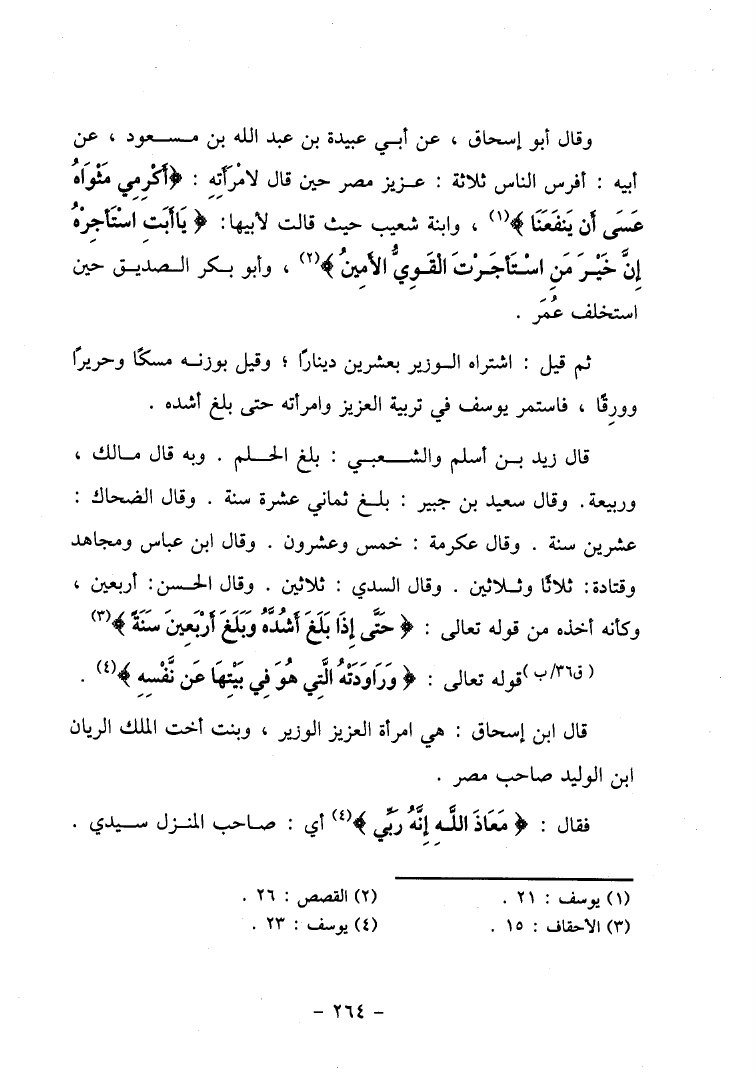 وقال أبو إسحاق ، عن أبي عبيدة بن عبد الله بن مسعود ، عن
أبيه : أفرس الناس ثلاثة : عزيز مصر حين قال لامْرَأَتِهِ : ﴿أَكْرِمِي مَثْوَاهُ
عَسَى أَن يَنفَعَنَا ﴾(١) ، وابنة شعيب حيث قالت لأبيها: ﴿ يَاأَبَتِ اسْتَأْجِرْهُ
إِنَّ خَيْرَ مَنِ اسْتَأْجَرْتَ الْقَوِيُّ الأَمِينُ ﴾(٢) ، وأبو بكر الصديق حين
استخلف عُمَر .
ثم قيل : اشتراه الوزير بعشرين دينارًا ؛ وقيل بوزنه مسكًا وحريرًا
وورِقًا ، فاستمر يوسف في تربية العزيز وامرأته حتى بلغ أشده .
قال زيد بن أسلم والشعبي : بلغ الحلم . وبه قال مالك ،
وربيعة. وقال سعيد بن جبير : بلغ ثماني عشرة سنة . وقال الضحاك :
عشرين سنة . وقال عكرمة : خمس وعشرون . وقال ابن عباس ومجاهد
وقتادة: ثلاثًا وثلاثين . وقال السدي : ثلاثين . وقال الحسن: أربعين ،
وكأنه أخذه من قوله تعالى : ﴿ حَتَّى إِذَا بَلَغَ أَشُدَّهُ وَبَلَغَ أَرْبَعِينَ سَنَةً ﴾(٣)
( ق٣٦/ب)قوله تعالى : ﴿ وَرَاوَدَتْهُ الَّتِي هُوَ فِي بَيْتِهَا عَن نَّفْسِهِ ﴾(٤) .
قال ابن إسحاق : هي امرأة العزيز الوزير ، وبنت أخت الملك الريان
ابن الوليد صاحب مصر .
فقال : ﴿ مَعَاذَ اللَّهِ إِنَّهُ رَبِّي ﴾(٤) أي : صاحب المنزل سيدي .
(١) يوسف : ٢١ . (٢) القصص : ٢٦ .
(٣) الاحقاف : ١٥ . (٤) يوسف : ٢٣ .
- ٢٦٤ -